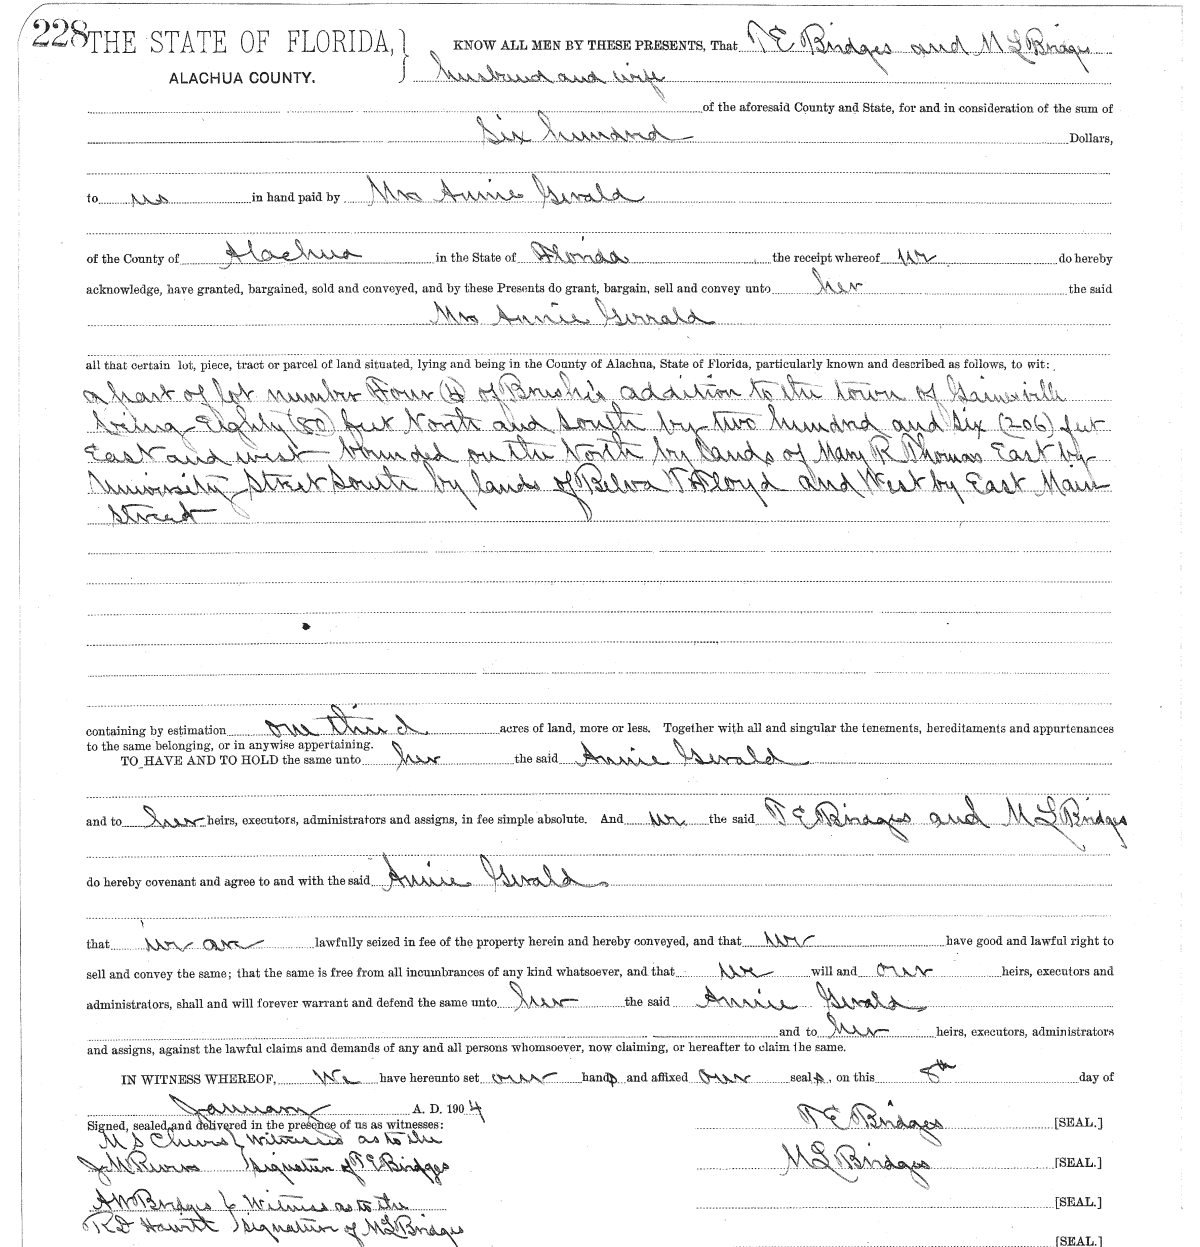 228 THE STATE OF FLORIDA, KNOW ALL MEN BY THESE PRESENTS, That T E Bridges and M L Bridges
ALACHUA COUNTY. husband and wife
of the aforesaid County and State, for and in consideration of the sum of
Six hundred Dollars,
to us in hand paid by Mrs Annie Gerald
of the County of Alachua in the State of Florida the receipt whereof we do hereby
acknowledge, have granted, bargained, sold and conveyed, and by these Presents do grant, bargain, sell and convey unto her the said
Mrs Annie Gerrald
all that certain lot, piece, tract or parcel of land situated, lying and being in the County of Alachua, State of Florida, particularly known and described as follows, to wit:
a part of lot number Four (4) of addition to the town of Gainesville
being Eighty (80) feet North and South by two hundred and six (206) feet
East and west bounded on the North by lands of Mary R Thomas East by
University Street South by lands of Belva Floyd and West by East Main
Street
containing by estimation one third acres of land, more or less. Together with all and singular the tenements, hereditaments and appurtenances
to the same belonging, or in anywise appertaining.
TO HAVE AND TO HOLD the same unto her the said Annie Gerald
and to her heirs, executors, administrators and assigns, in fee simple absolute. And we the said T E Bridges and M L Bridges
do hereby covenant and agree to and with the said Annie Gerald
that we are lawfully seized in fee of the property herein and hereby conveyed, and that we have good and lawful right to
sell and convey the same; that the same is free from all incumbrances of any kind whatsoever, and that we will and our heirs, executors and
administrators, shall and will forever warrant and defend the same unto her the said Annie Gerald
and to her heirs, executors, administrators
and assigns, against the lawful claims and demands of any and all persons whomsoever, now claiming, or hereafter to claim the same.
IN WITNESS WHEREOF, We have hereunto set our hands and affixed our seals, on this 8th day of
January A. D. 1904
Signed, sealed and delivered in the presence of us as witnesses: T E Bridges [SEAL.]
M S Witnesses as to the
J M signature of T E Bridges M L Bridges [SEAL.]
A W Bridges Witness as to the [SEAL.]
signature of M L Bridges
[SEAL.]